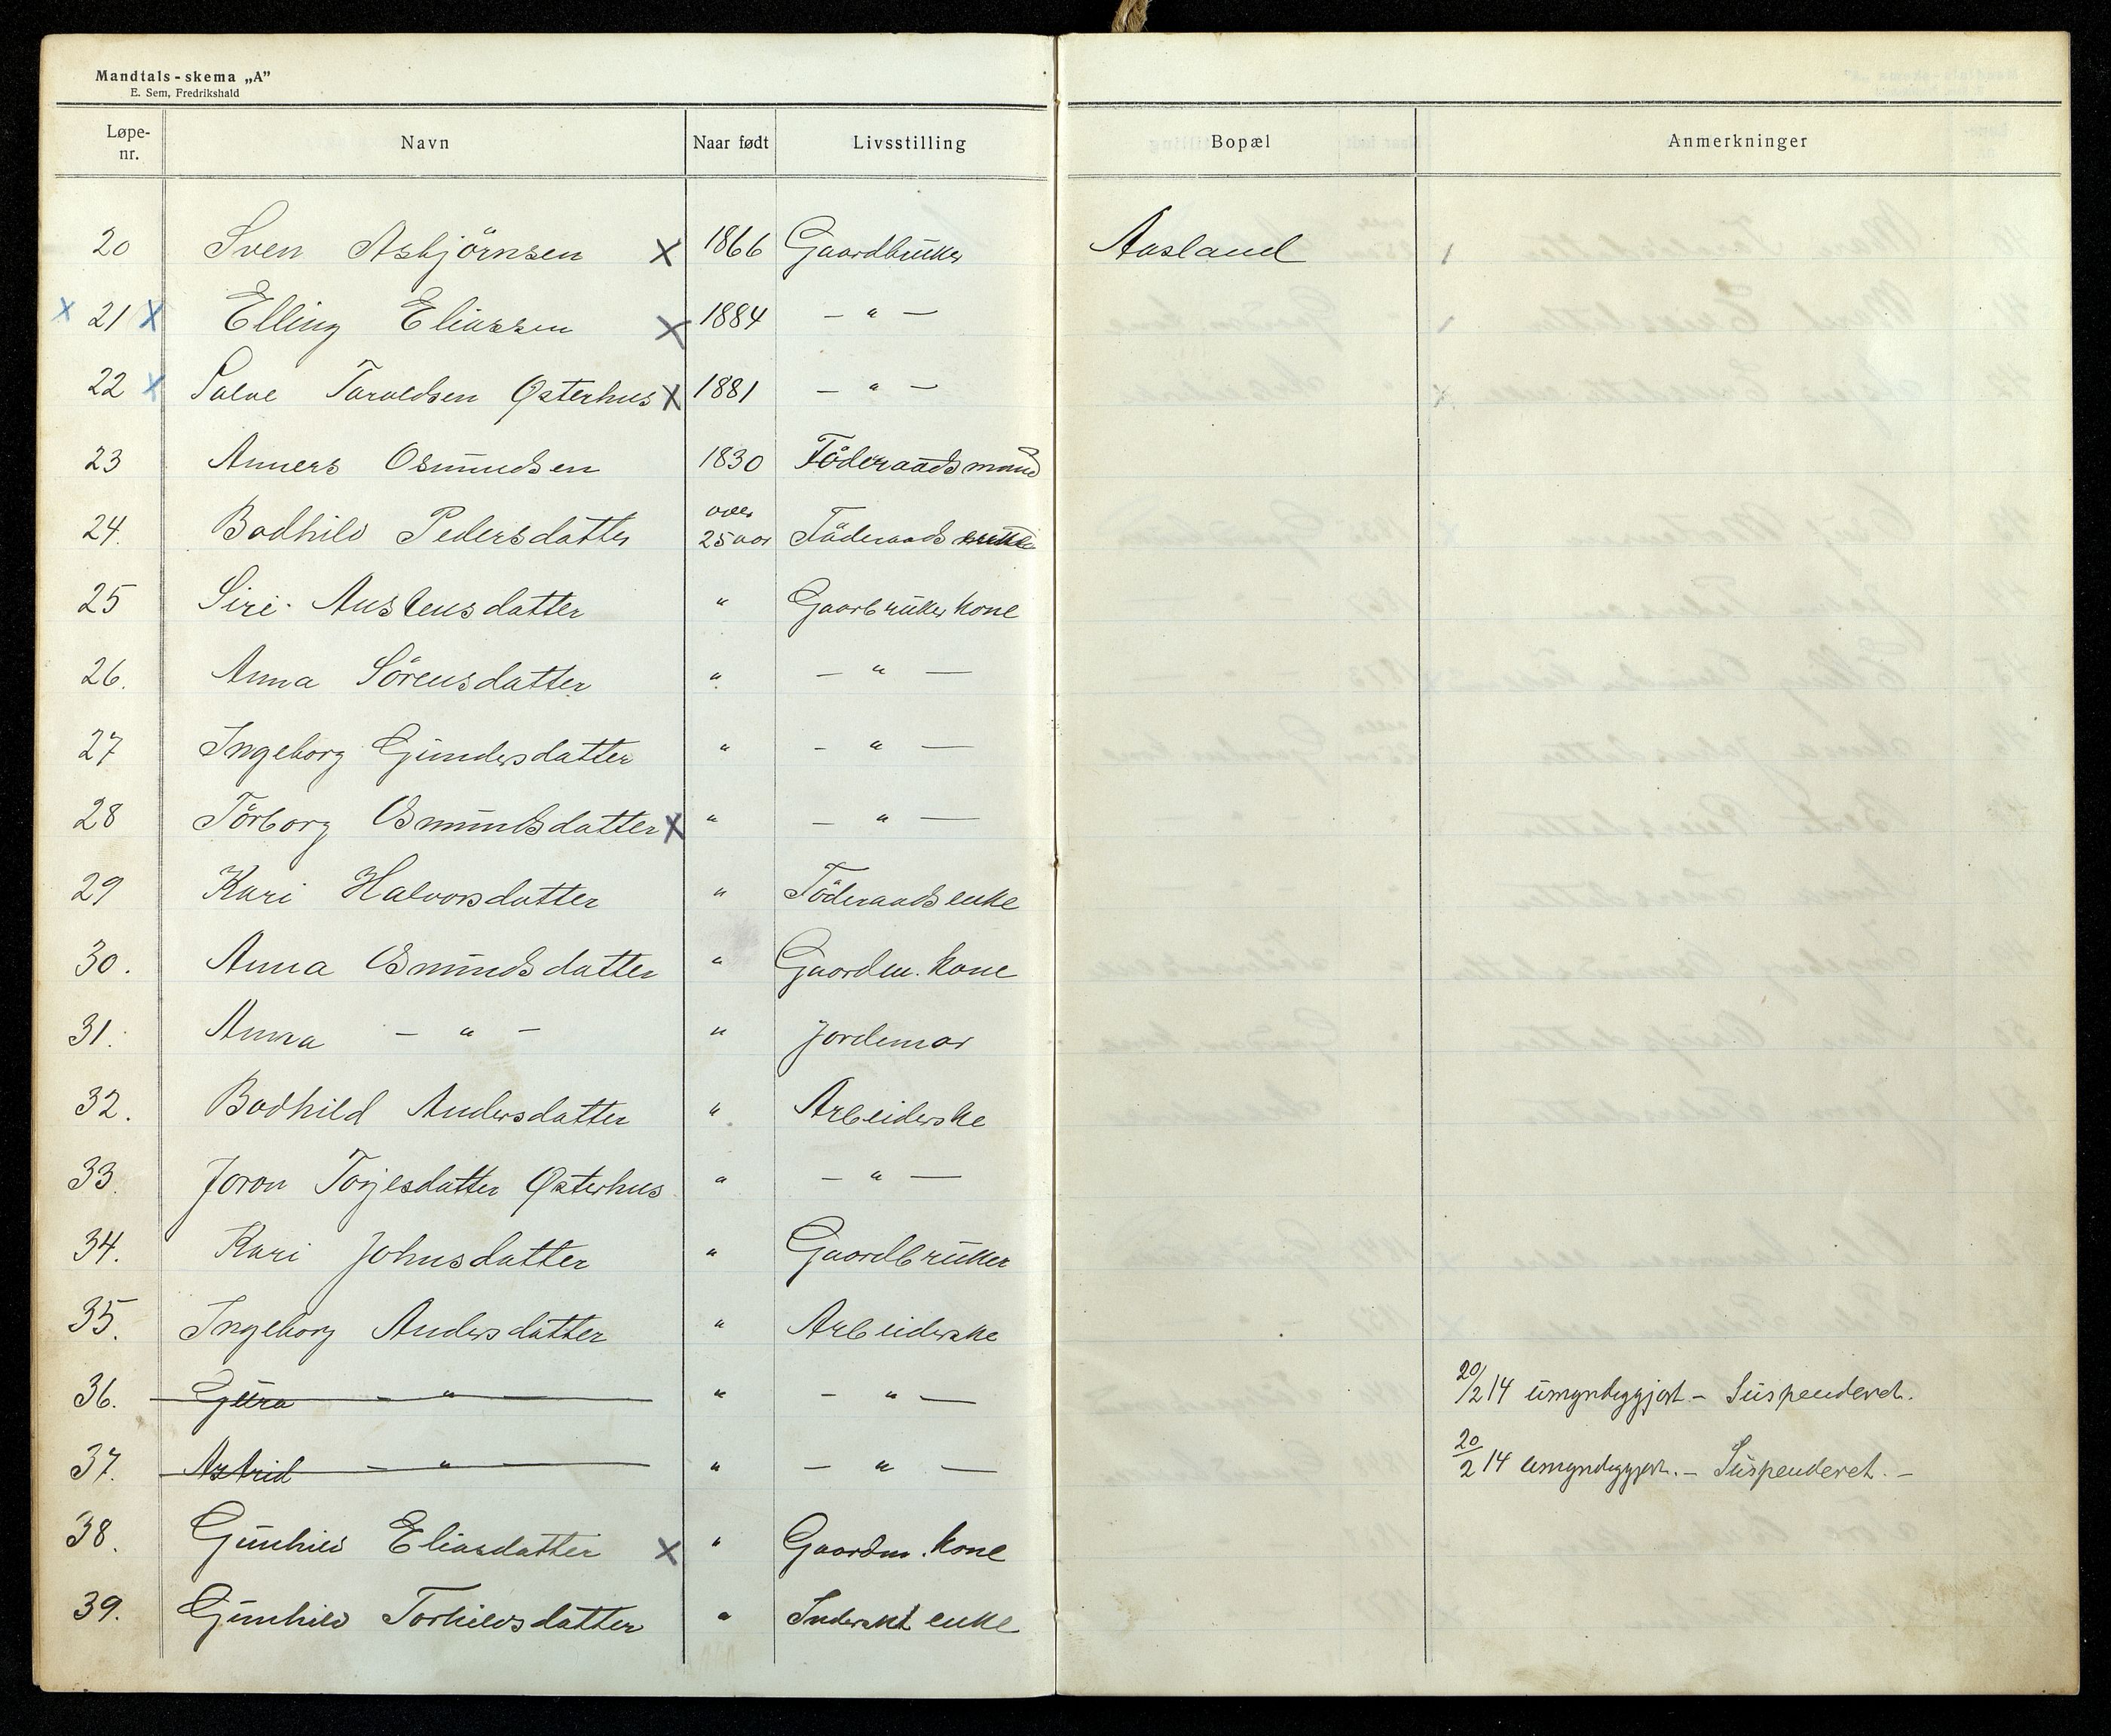 Mandtals-skema „A”
E. Sem, Fredrikshald
Løpe-nr. Navn Naar født Livsstilling Bopæl Anmerkninger
20 Sven Asbjörnsen X 1866 Gaardbruker Aasland
x 21 X Elling Eliassen X 1884 — " —
22 X Salve Taraldsen Østerhus X 1881 — " —
23 Anners Osmundsen 1830 Föderaadsmand
24. Bodhild Pedersdatter over 25 aar Föderaads
25 Siri Austensdatter " Gaarbruker kone
26. Anna Sörensdatter " — " —
27 Ingeborg Gundersdatter " — " —
28 Törborg Osmundsdatter X " — " —
29 Kari Halvorsdatter " Föderaads enke
30. Anna Osmundsdatter " Gaardm. kone
31. Anna — " — " Jordemor
32. Bodhild Andersdatter " Arbeiderske
33. Joron Torjesdatter Østerhus " — " —
34. Kari Johnsdatter " Gaardbruker
35. Ingeborg Andersdatter " Arbeiderske
36. Gura — " — " — " — 20/2 14 umyndiggjort. — Suspenderet.
37. Astrid — " — " — " — 20/2 14 umyndiggjort. — Suspenderet. —
38. Gunhild Eliasdatter X " Gaardm. kone
39. Gunhild Torkildsdatter " Inderst enke